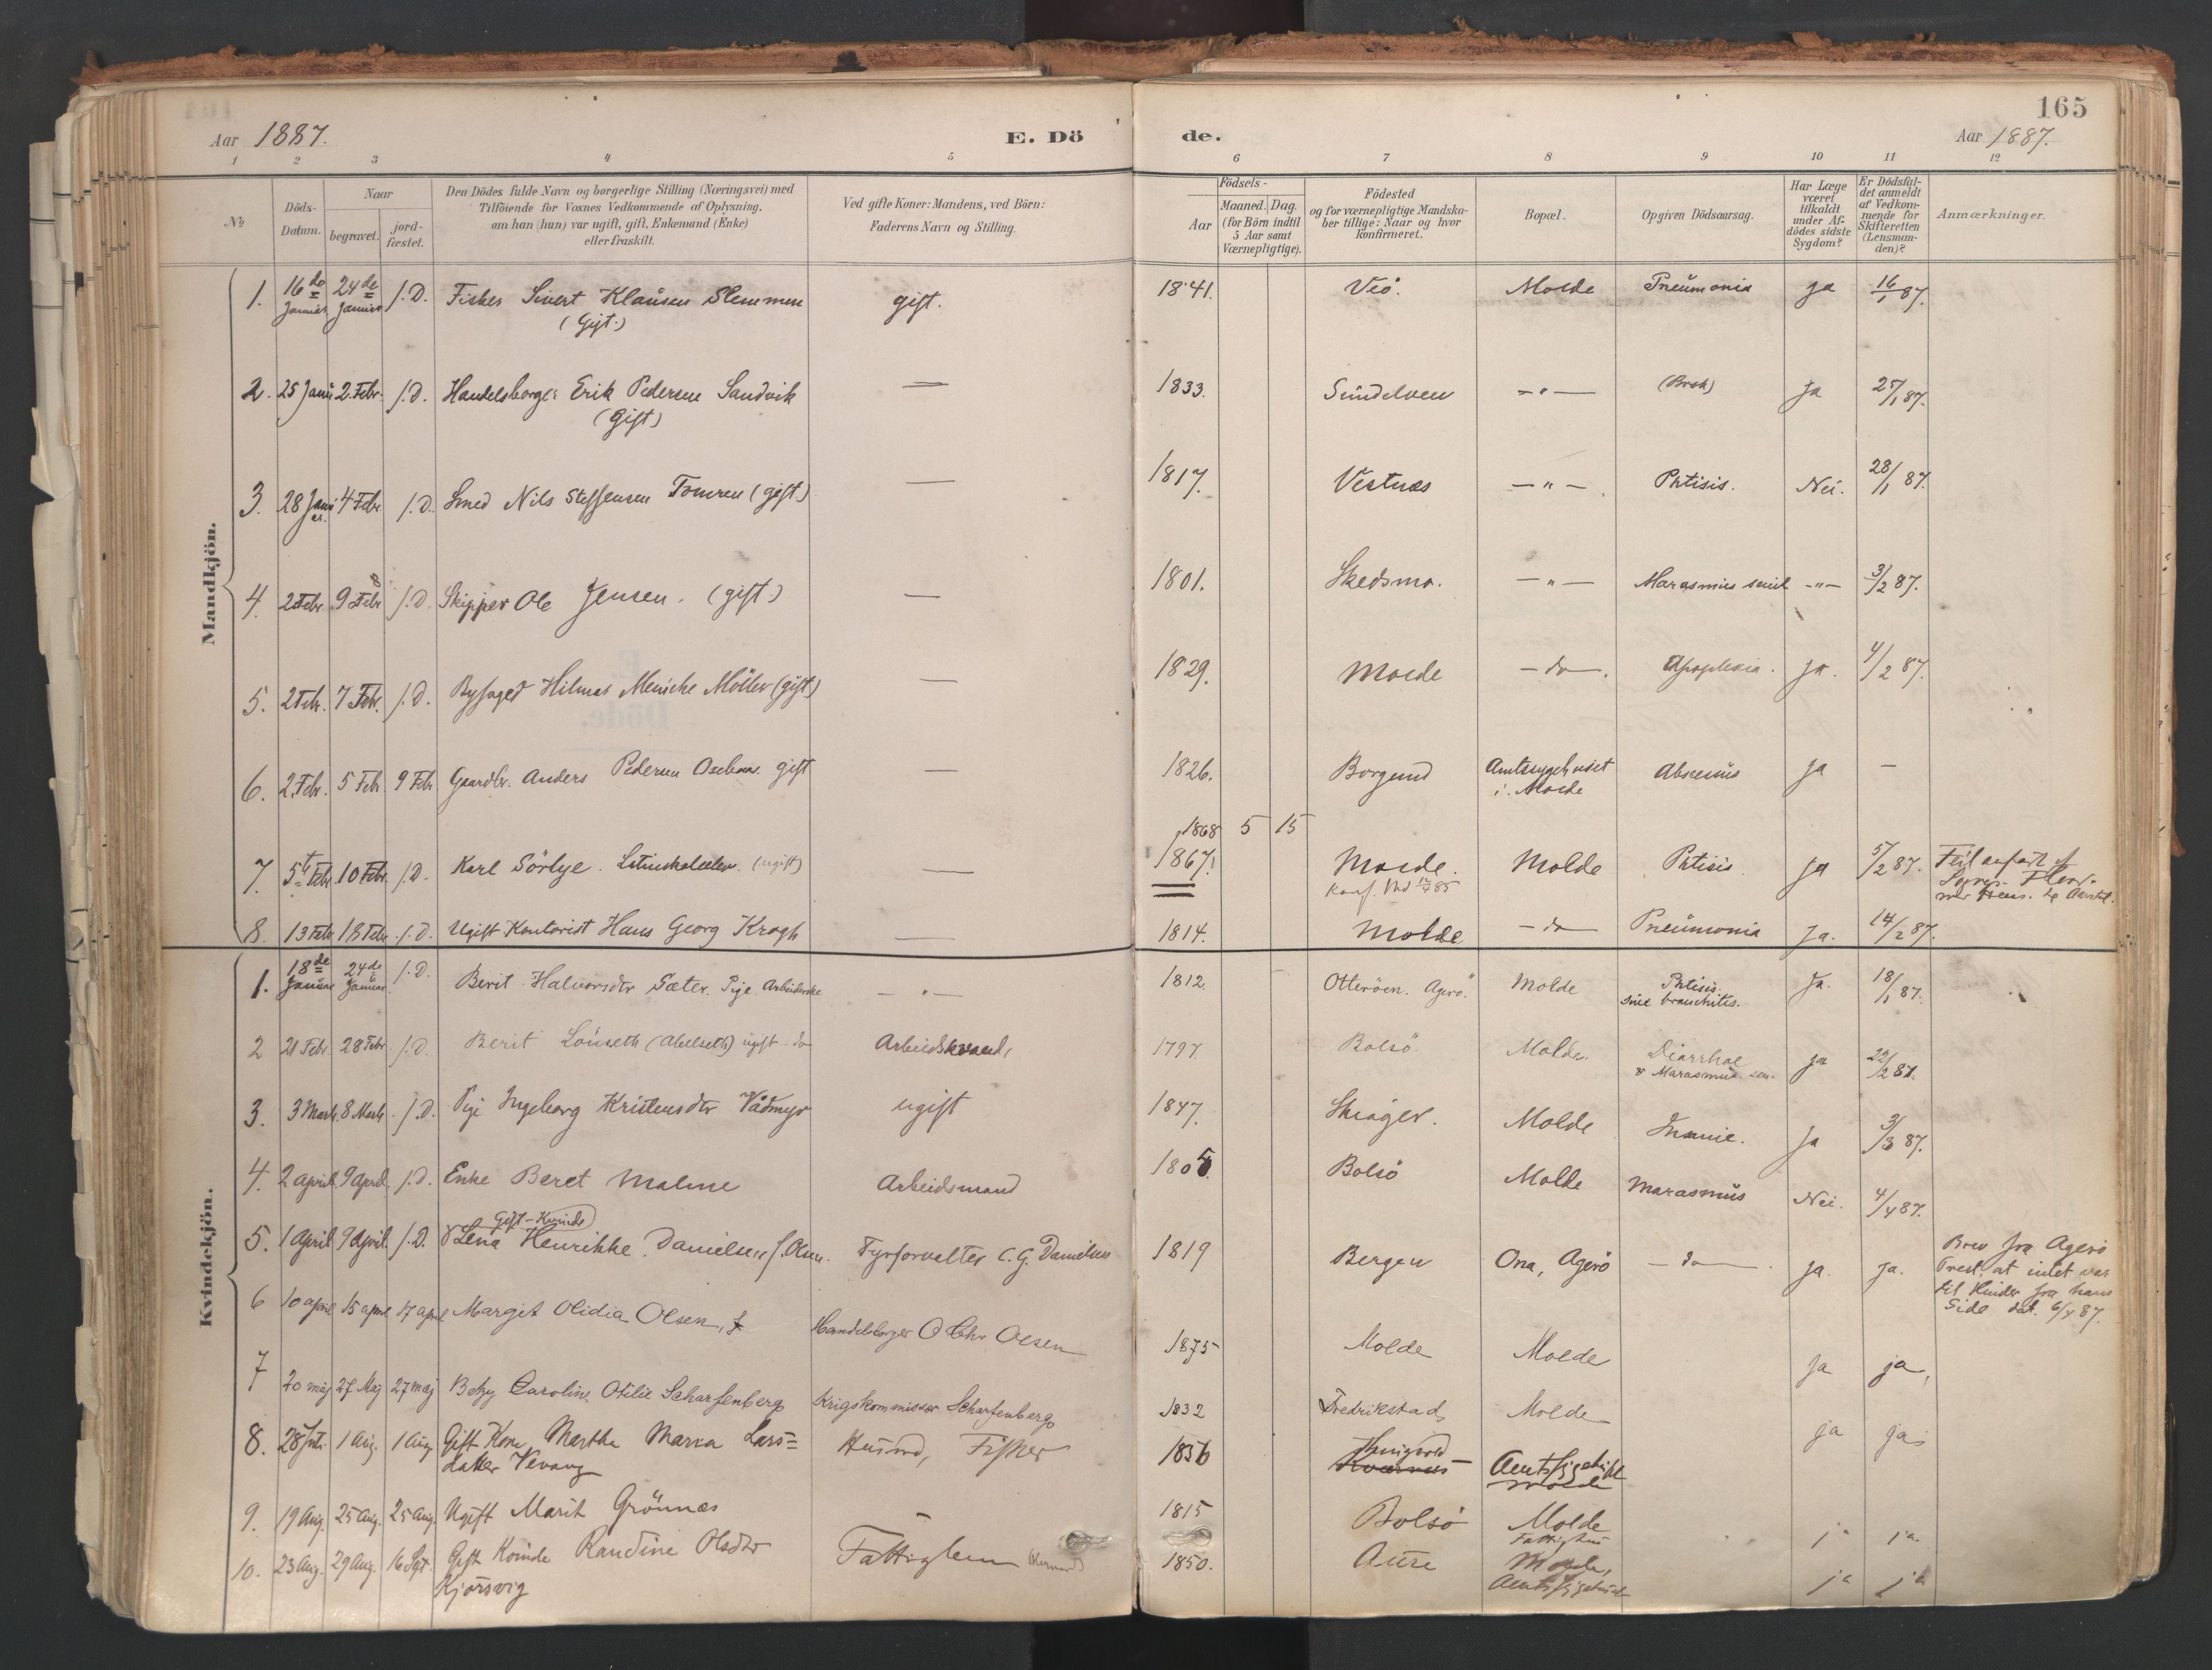 165
Aar 1887. E. Dö de. Aar 1887.
1 2 3 4 5 6 7 8 9 10 11 12
No
Döds-Datum.
Naar
begravet.
jord-fæstet.
Den Dödes fulde Navn og borgerlige Stilling (Næringsvei) med
Tilföiende for Voxnes Vedkommende af Oplysning,
om han (hun) var ugift, gift, Enkemand (Enke)
eller fraskilt.
Ved gifte Koner: Mandens, ved Börn:
Faderens Navn og Stilling.
Födsels-
Aar
Maaned. Dag.
(for Börn indtil
5 Aar samt
Værnepligtige).
Födested
og for værnepligtige Mandska-
ber tillige: Naar og hvor
konfirmeret.
Bopæl.
Opgiven Dödsaarsag.
Har Læge
været
tilkaldt
under Af-
dödes sidste
Sygdom?
Er Dödsfal-
det anmeldt
af Vedkom-
mende for
Skifteretten
(Lensman-
den)?
Anmærkninger.
Mandkjön.
1. 16de Januar 24de Januar J.D. Fisker Sivert Klausen Slemmen gift. 1841. Veö. Molde Pneumonia ja 16/1 87.
(Gift.)
2. 25 Janu 2. Febr. J.D. Handelsborger Erik Pedersen Sandvik — 1833. Sundelven —"— (Brok) Ja 25/1 87.
(Gift)
3. 28 Janu 4 Febr J.D. Smed Nils Steffensen Tomren (gift.) — 1817. Vestnes —"— Phtisis. Nei. 28/1 87.
4. 2 Febr. 9 Febr J.D. Skipper Ole Jensen. (gift.) — 1801. Skedsmo. —"— Marasmus senil —"— 3/2 87.
5. 2 Febr. 7 Febr. J.D. Byfoged Hilmar Meincke Möller (gift) — 1829. Molde —do—. Apoplexia. ja. 4/2 87.
6. 2. Febr. 5 Febr 9 Febr Gaardbr. Anders Pedersen gift — 1826. Borgund Amtssygehuset Abscessus ja —
i. Molde
1868 5 15
7. 5te Febr. 10 Febr. J.D. Karl Sörlye. (ugift) — 1867! Molde. Molde Phtisis ja 5/2 87. Feil
Konf.
8. 13 Febr 18 Febr. J.D. Ugift Kontorist Hans Georg Krogh — 1814. Molde —do— Pneumonia Ja. 14/2 87.
Kvindekjön.
1. 18de Januar 24de Januar. J.D. Berit Halvorsdtr Sæter. Pige. Arbeiderske —"— 1812. Otteröen. Agerö. Molde Phtisis. Ja. 18/1 87.
sive bronchitis.
2 21 Febr. 28 Febr. J.D. Berit Lönseth ugift do Arbeidskvand, 1797. Bolsö. Molde. Diarrhoe ja 22/2 87.
& Marasmus sen.
3. 3 Marts. 8 Marts. J.D. Pige Ingeborg Kristensdtr Vådmyr ugift 1847. Skiåger. Molde Ja 3/3 87.
4. 2 april. 9 April. J.D. Enke Beret Malme Arbeidsmand 1805. Bolsö Molde Marasmus Nei. 4/4 87.
Gift-Kvinde
5. 1 April 9 April. J.D. Lena Henrikke Danielsen f. Olsen. Fyrforvalter C. G. Danielsen 1819 Bergen Ona, Agerö —do—. ja. ja. Brev fra Agerö
Prest, at intet var
til Hinder fra hans
Side dat. 6/4 87.
6 10 april 15 april 17 april Margit Olidia Olsen, Handelsborger O Chr Olsen 1875 Molde Molde Ja ja,
7 20 maj 27 Maj 27 maj Betzy Caroline Otilie Scharfenberg Krigskommissær Scharfenberg 1832 Fredrikstad, Molde ja ja
8. 28 Juli. 1 Aug. 1 Aug. Gift Kone Martha Maria Lars= Husmd, Fisker 1856 Amtssygehuset
datter Vevang Kværnes Molde
9. 19 Aug. 25 Aug. 25 Aug. Ugift Marit Grönnæs — 1815 Bolsö Molde ja ja.
Fattighus
10. 23 Aug. 29 Aug. 16 Spt. Gift Kvinde Randine Olsdtr Fattiglem 1850. Aure Molde, ja ja
Kjörsvig Amtssygehuset